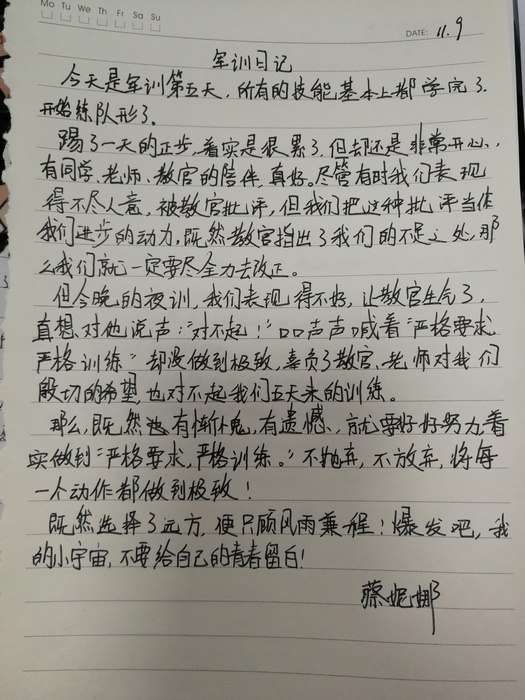 Mo Tu We Th Fr Sa Su
DATE: 11.9
军训日记
今天是军训第五天，所有的技能基本上都学完了，
开始练队形了。
踢了一天的正步，着实是很累了，但却还是非常开心，
有同学、老师、教官的陪伴，真好。尽管有时我们表现
得不尽人意，被教官批评，但我们把这种批评当作
我们进步的动力，既然教官指出了我们的不足之处，那
么我们就一定要尽全力去改正。
但今晚的夜训，我们表现得不好，让教官生气了，
真想对他说声：“对不起！”口口声声喊着“严格要求，
严格训练”却没做到极致，辜负了教官、老师对我们
殷切的希望，也对不起我们五天来的训练。
那么，既然也有惭愧，有遗憾，就要好好努力，着
实做到“严格要求，严格训练。”不抛弃，不放弃，将每
一个动作都做到极致！
既然选择了远方，便只顾风雨兼程！爆发吧，我
的小宇宙，不要给自己的青春留白！
蔡妮娜